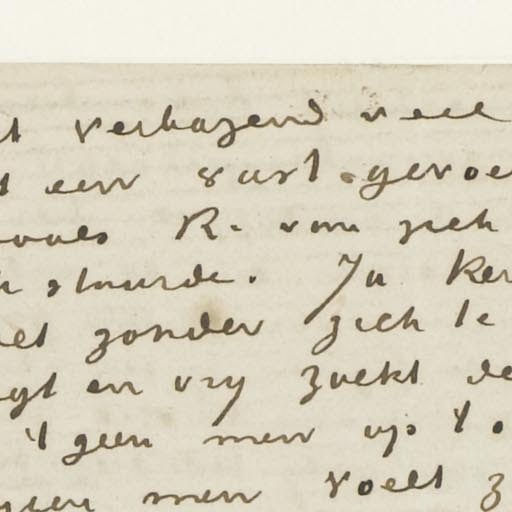 t verbazend veel
t een vast gevoe
zooals R. van zich
h stuurde. Ja Ker
et zonder zich te
gt en vry zoekt de
't geen men op 't o
men voelt z